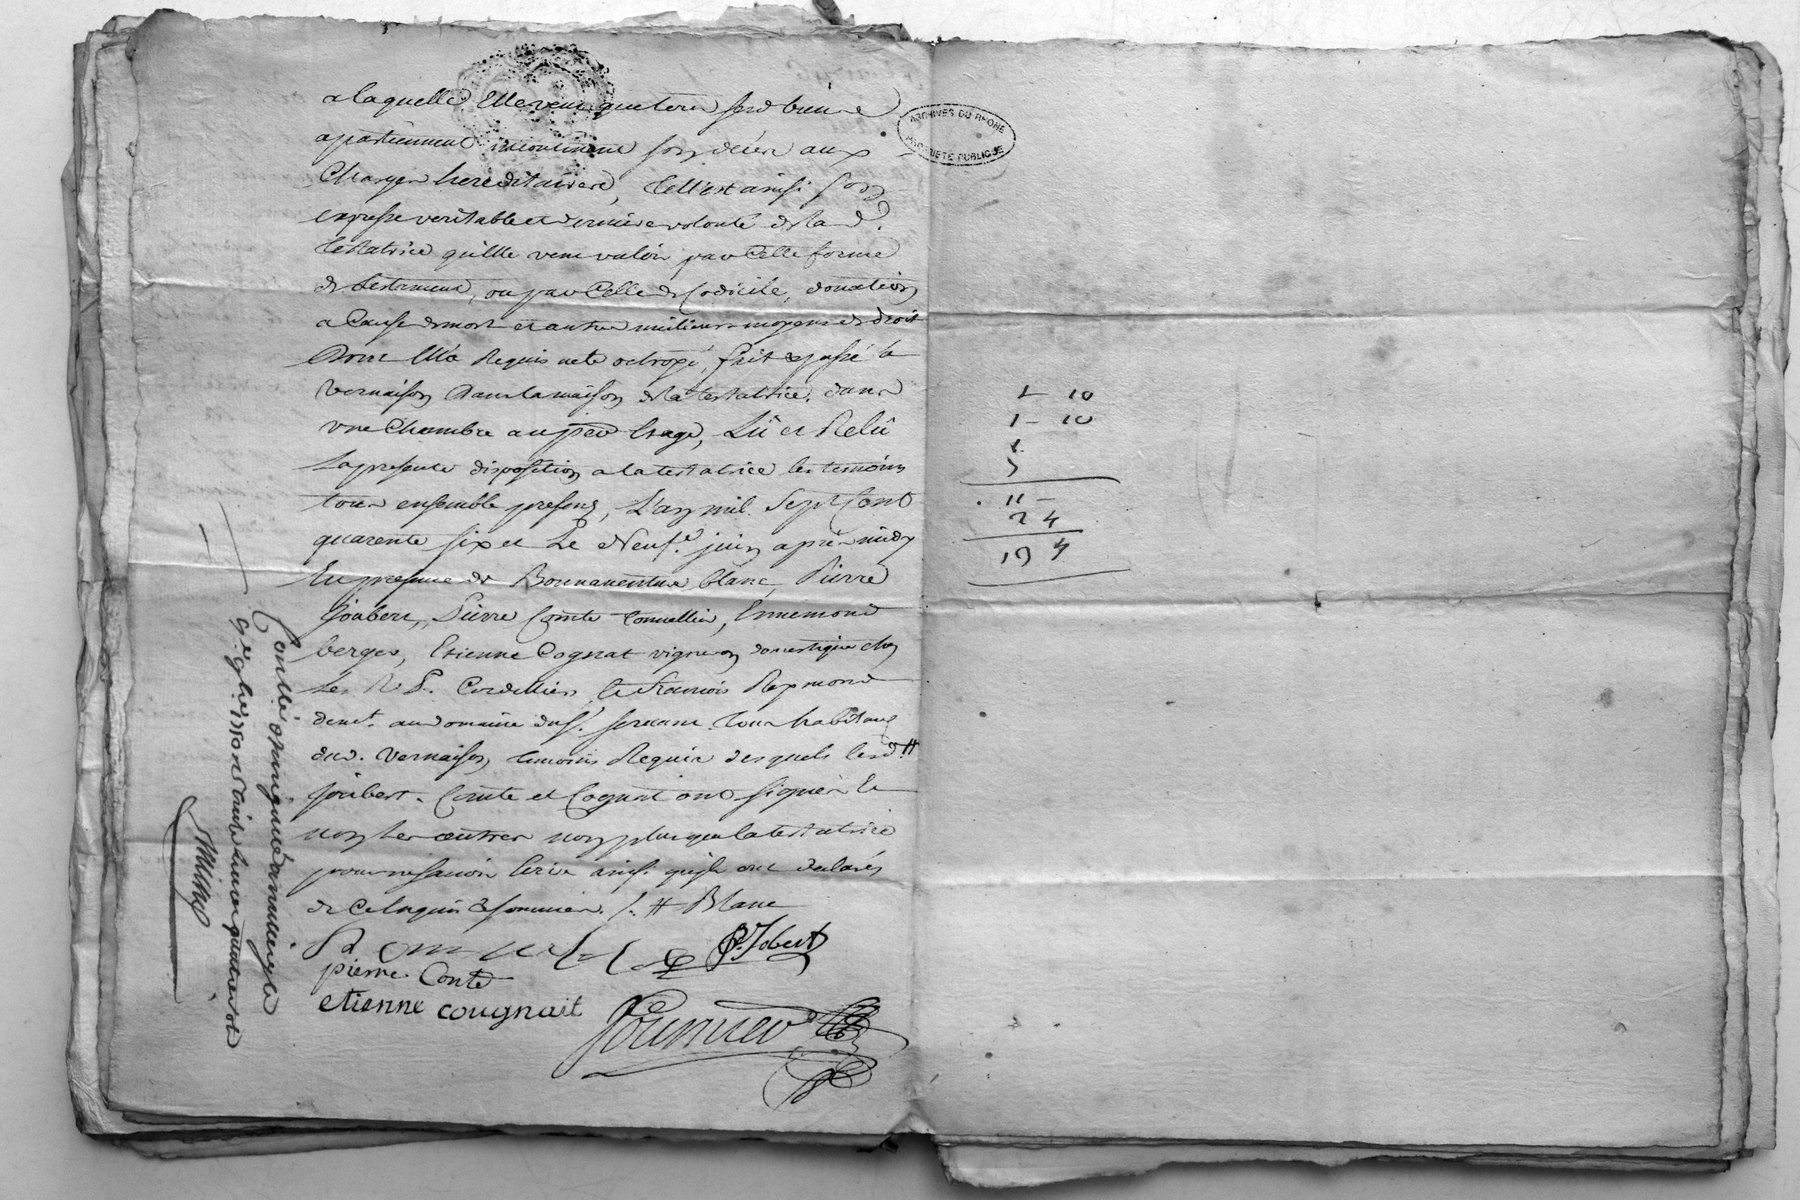 a laquelle Elle veut que tous ses biens
apartiennent incontinent son décès aux
Charges hereditaires, telle est ainsi son
expresse veritable et derniere volonté de la d.
testatrice qu'elle veut valoir par Celle forme
de testament, ou par Celle de Codicile, donation
a Cause de mort et autres meilleurs moyens de droit
Dont Elle a Requis acte octroyé, fait & passé a
vernaison dans la maison de la testatrice, dans
vne Chambre au p.er Etage, Lû et Relû
la presente disposition a la testatrice les temoins
tous ensemble presens, L'an mil Sept Cent
quarente six et Le Neuf.e juin après midy
En presence de Bonnaventure blanc, Pierre
Joubert, Pierre Comte tonnellier, Ennemond
berger, Etienne Cognat vigneron domestique chez
Les R. P. Cordelliers, et François Reymond
demt. au domaine du sr. servant tous habitans
dud. vernaison, temoins Requis desquels lesd. #
Joubert. Comte et Cognat ont signés et
non les autres non plus que la testatrice
pour ne savoir Ecrire ainsi qu'ils ont declarés
de Ce Enquis & sommés. /. # Blanc
P. Jobert
pierre Conte
etienne cougnait
Fournier
Conllé a givors
ARCHIVES DU RHONE
PROPRIETE PUBLIQUE
1 - 10
1 - 10
11 -
2 4
13 4